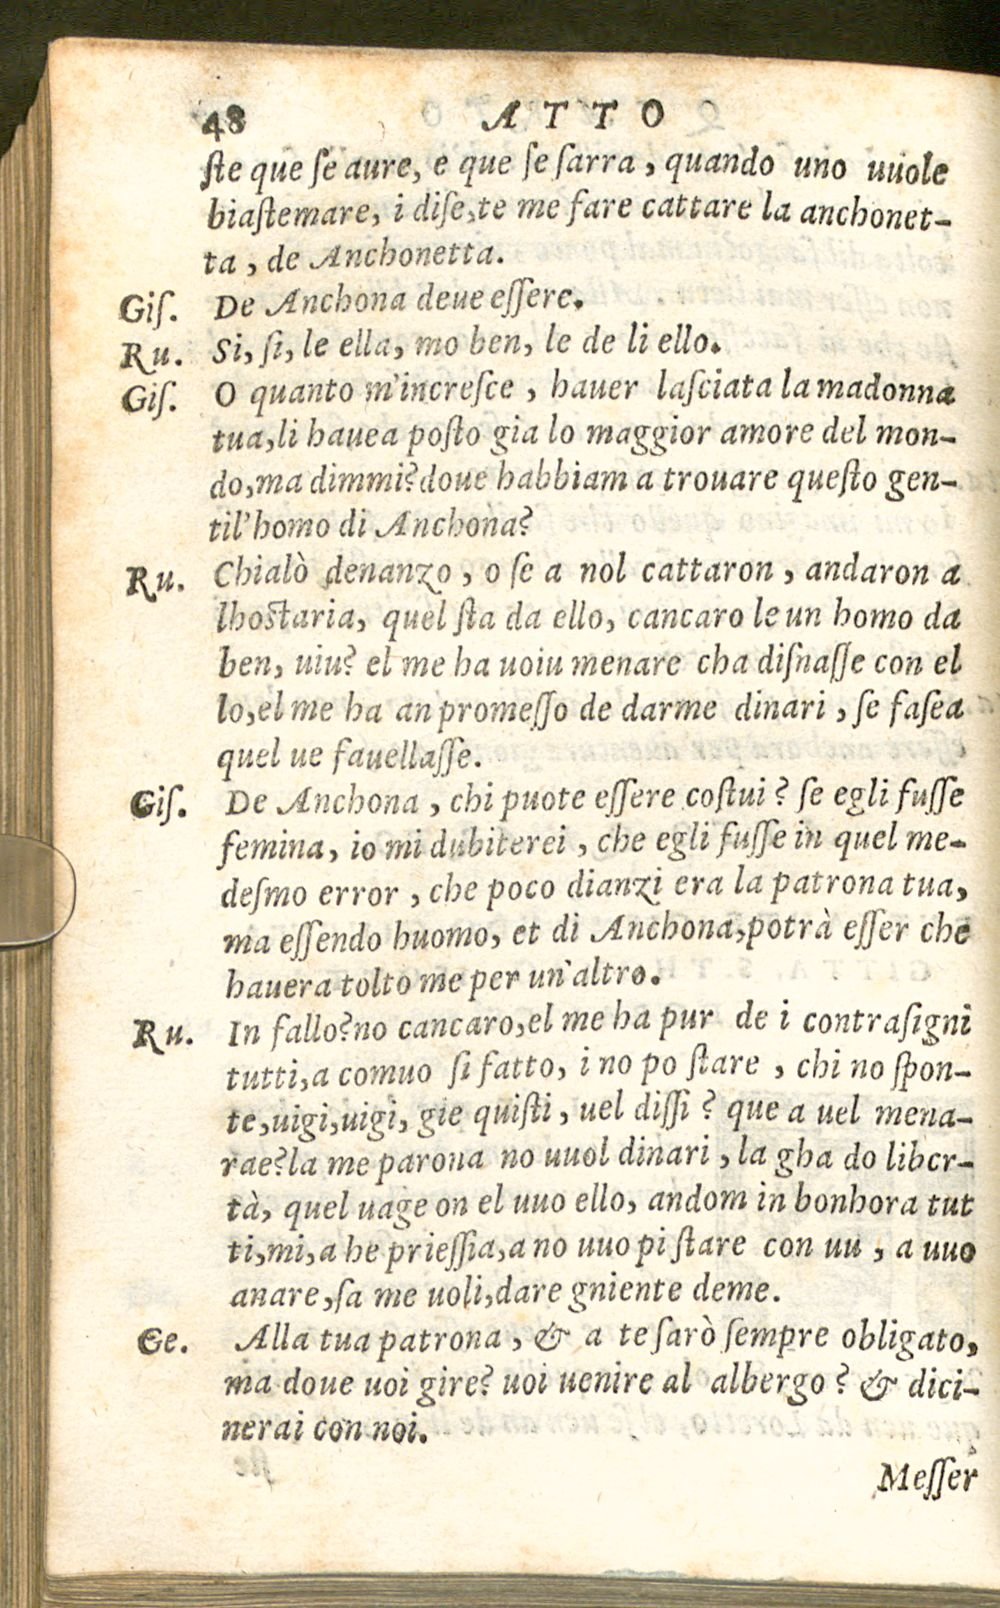 48 ATTO
ſte que ſe aure, e que ſe ſarra, quando uno uuole
biaſtemare, i diſe, te me fare cattare la anchonet-
ta, de Anchonetta.
Giſ. De Anchona deue eſſere.
Ru. Si, ſi, le ella, mo ben, le de li ello.
Giſ. O quanto m'increſce, hauer laſciata la madonna
tua, li hauea poſto gia lo maggior amore del mon-
do, ma dimmi? doue habbiam a trouare queſto gen-
til'homo di Anchona?
Ru. Chialò denanzo, o ſe a nol cattaron, andaron a
lhoſtaria, quel ſta da ello, cancaro le un homo da
ben, uiu? el me ha uoiu menare cha diſnaſſe con el
lo, el me ha an promeſſo de darme dinari, ſe faſea
quel ue fauellaſſe.
Giſ. De Anchona, chi puote eſſere coſtui? ſe egli fuſſe
femina, io mi dubiterei, che egli fuſſe in quel me-
deſmo error, che poco dianzi era la patrona tua,
ma eſſendo huomo, et di Anchona, potrà eſſer che
hauera tolto me per un'altro.
Ru. In fallo? no cancaro, el me ha pur de i contraſigni
tutti, a comuo ſi fatto, i no po ſtare, chi no ſpon-
te, uigi, uigi, gie quiſti, uel diſſi? que a uel mena-
rae? la me parona no uuol dinari, la gha do liber-
tà, quel uage on el uuo ello, andom in bonhora tut
ti, mi, a he prieſſia, a no uuo pi ſtare con uu, a uuo
anare, ſa me uoli, dare gniente deme.
Ge. Alla tua patrona, & a te ſarò ſempre obligato,
ma doue uoi gire? uoi uenire al albergo? & dici-
nerai con noi.
Meſſer